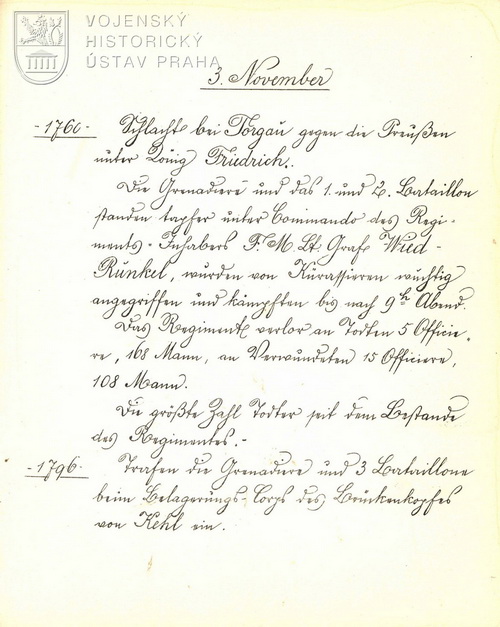 VOJENSKÝ
HISTORICKÝ
ÚSTAV PRAHA
3. November
- 1760 - Schlacht bei Torgau gegen die Preußen
unter König Friedrich.
Die Grenadiere und das 1. und 2. Bataillon
standen tapfer unter Commando des Regi-
ments-Inhabers F.M.Lt Graf Wied-
Runkel, wurden von Kürassieren wuchtig
angegriffen und kämpften bis nach 9h Abend.
Das Regiment verlor an Todten 5 Officie-
re, 168 Mann, an Verwundeten 15 Officiere,
108 Mann.
Die größte Zahl Todter seit dem Bestande
des Regimentes.-
- 1796 - Trafen die Grenadiere und 3 Bataillone
beim Belagerungs-Corps des Brückenkopfes
von Kehl ein.